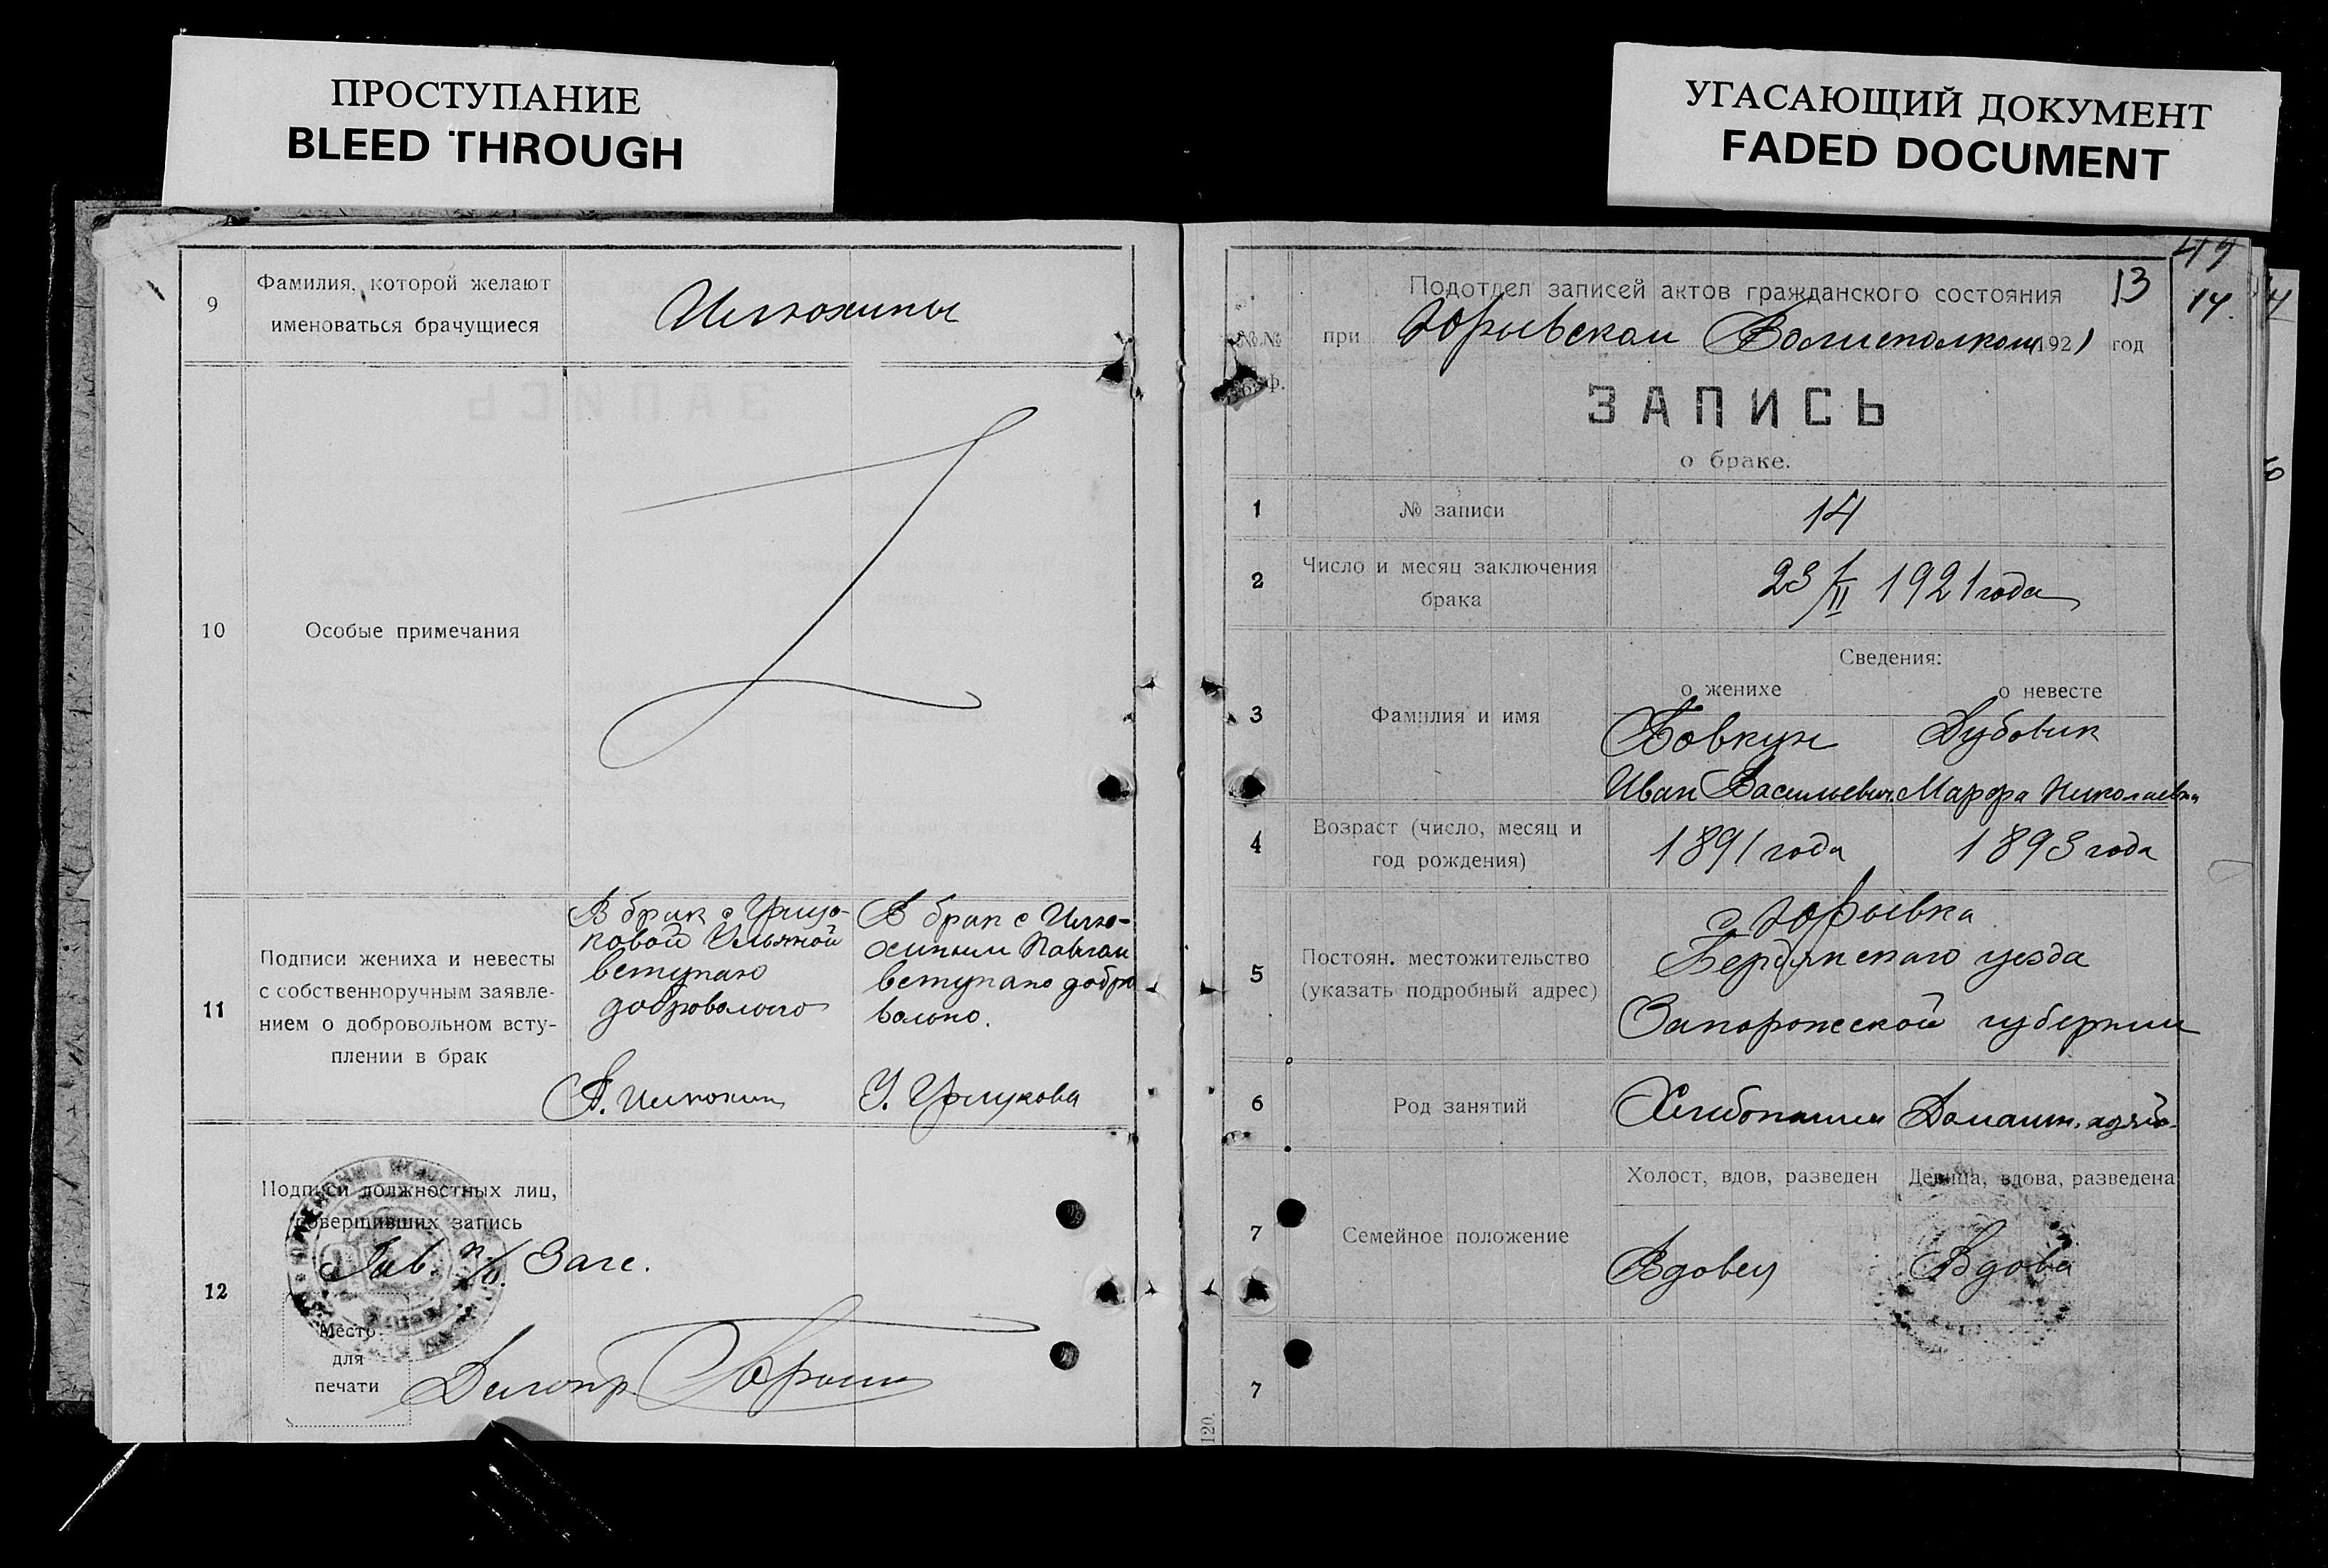 ПРОСТУПАНИЕ
BLEED THROUGH
УГАСАЮЩИЙ ДОКУМЕНТ
FADED DOCUMENT
9
Фамилия, которой желают
именоваться брачущиеся
Илюхины
10
Особые примечания
11
Подписи жениха и невесты
с собственноручным заявле-
нием о добровольном всту-
плении в брак
В брак с
ковой Ульяной
вступаю
добровольно
А. Илюхин
В брак с Илю-
хиным Павлом
вступаю добро
вольно.
У.
12
Подписи должностных лиц,
совершивших запись
Зав. п/о. Загс.
Место
для
печати
47
13
14.
Подотдел записей актов гражданского состояния
№№
при Юрьевском Волисполкоме 1921 год
граф.
ЗАПИСЬ
о браке.
1
№ записи
14
2
Число и месяц заключения
брака
23/II 1921 года
Сведения:
о женихе
о невесте
3
Фамилия и имя
Бовкун
Дубовик
Иван Васильевич
Марфа Николаевна
4
Возраст (число, месяц и
год рождения)
1891 года
1893 года
5
Постоян. местожительство
(указать подробный адрес)
с Юрьевка
Бердянскаго уезда
Запорожской губернии
6
Род занятий
Хлибопашец
Домашн.
7
Семейное положение
Холост, вдов, разведен
Девица, вдова, разведена
Вдовец
Вдова
7
120.